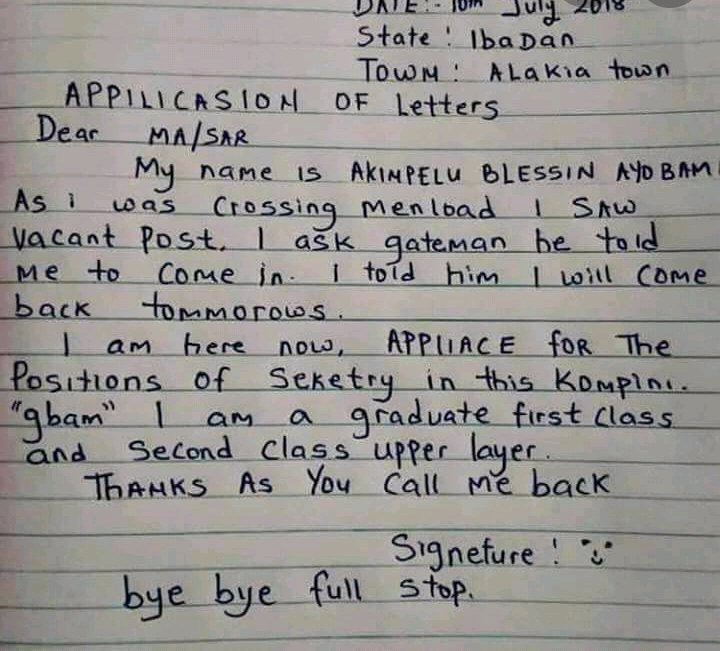 DATE:- 10th July 2018
State : Ibadan
Town : Alakia town
APPILICASION OF Letters
Dear MA/SAR
My name is AKINPELU BLESSIN AYOBAMI
As i was crossing menload I SAW
vacant Post. I ask gateman he told
me to come in. I told him I will come
back tommorows.
I am here now, APPLIACE for The
Positions of Seketry in this Kompini.
"gbam" I am a graduate first class
and second class upper layer.
THANKS AS You call me back
Signeture :
bye bye full stop.